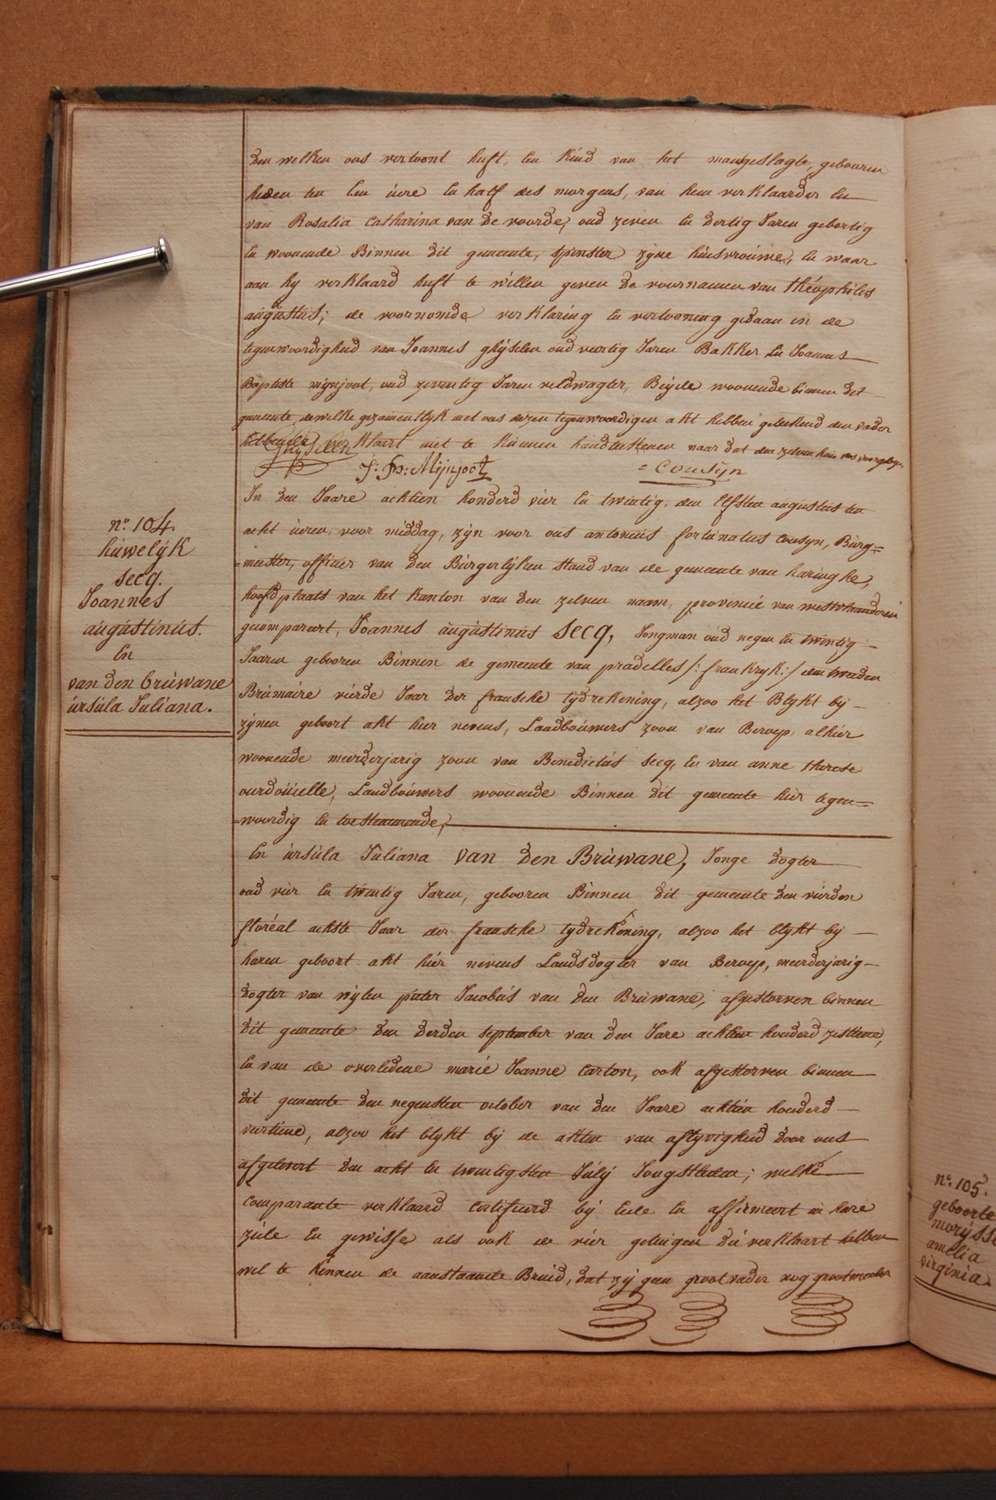 den welken ons vertoont heeft, een kind van het mangeslagte, gebooren
heden ten een uere en half des morgens, van hem verklaarder en
van Rosalia Catharina van de voorde, oud zeven en dertig Jaren gebortig
en woonende Binnen dit gemeente, spinster zyne huisvrouwe, en waar
aan hy verklaard heeft te willen geven de voornamen van théophilus
augustus; de voornomde verklaring en vertooning gedaan in de
tegenwoordigheid van Joannes ghyselen oud veertig Jaren Bakker En Joannes
Baptiste mijnjoot, oud zeventig Jaren veldwagter, Beijde woonende binnen dit
gemeente dewelke gezamentlyk met ons dezen tegenwoordigen akt hebben geteekend den vader
het verklaart niet te kunnen handteekenen naar dat den zelven hun was voorgelezen
ghyselen J: B: Mijnjoot = Cousyn
In den Jaare achtien honderd vier en twintig, den elfsten augustus ten
acht ueren, voor middag, zyn voor ons antonius fortunatus cousyn, Burg=
=meester, officier van den Burgerlyken stand van de gemeente van haringhe,
hoofdplaats van het kanton van den zelven naam, provincie van westvlaanderen
gecompareert, Joannes augustinus secq, Jongman oud negen en twintig
Jaaren gebooren Binnen de gemeente van pradelles /: frankryk:/ den tweeden
Brumaire vierde Jaar der fransche tydrekening, alzoo het Blykt bij
zijnen geboort akt hier nevens, Landbouwers zoon van Beroep, alhier
woonende meerderjarig zoon van Benedictus secq, en van anne therese
ourdouille, Landbouwers woonende Binnen dit gemeente hier tegen=
woordig en toestemmende,
En ursula Juliana van den Bruwane, Jonge dogter
oud vier en twentig Jaren, gebooren Binnen dit gemeente den vierden
floréal achtste Jaar der fransche tydrekening, alzoo het blykt bij
haren geboort akt hier nevens Landsdogter van Beroep, meerderjarig
dogter van wylen pieter Jacobus van den Bruwane, afgestorven binnen
dit gemeente den derden september van den Jare achtien honderd zesthiene,
en van de overledene marie Joanne Carton, ook afgestorven binnen
dit gemeente den negensten october van den Jaare achtien honderd
viertiene, alzoo het blykt bij de akten van aflyvigheid door ons
afgelevert den acht en twentigsten July Jongstleden; welke
comparante verklaard certifieerd bij eede en affirmeert in hare
ziele en gewisse als ook de vier getuigen die verklaart hebben
wel te kennen de aanstaande Bruid, dat zij geen grootvader nog grootmoeder
n.º 104.
huwelijk
secq.
Joannes
augustinus.
En
van den bruwane
ursula Juliana.
n.º 105.
geboorte
amelia
virginia.